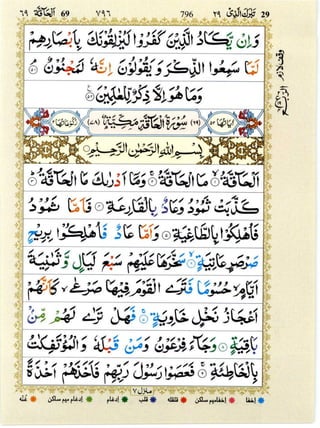 ٱلْحَآقَّة 69 ٦٩ ٧٩٦ 796 تَبٰرَكَ الَّذِى ٢٩ 29
وَاِنْ يَّكَادُ الَّذِيْنَ كَفَرُوْا لَيُزْلِقُوْنَكَ بِاَبْصَارِهِمْ
لَمَّا سَمِعُوا الذِّكْرَ وَيَقُوْلُوْنَ اِنَّهٗ لَمَجْنُوْنٌ ۘ
وَمَا هُوَ اِلَّا ذِكْرٌ لِّلْعٰلَمِيْنَ
سُوْرَةُ الْحَآقَّةِ مَكِّيَّةٌ
بِسْمِ اللّٰهِ الرَّحْمٰنِ الرَّحِيْمِ
اَلْحَآقَّةُ ۙ مَا الْحَآقَّةُ ۚ وَمَاۤ اَدْرٰىكَ مَا الْحَآقَّةُ ؕ
كَذَّبَتْ ثَمُوْدُ وَعَادٌۢ بِالْقَارِعَةِ فَاَمَّا ثَمُوْدُ
فَاُهْلِكُوْا بِالطَّاغِيَةِ وَاَمَّا عَادٌ فَاُهْلِكُوْا بِرِيْحٍ
صَرْصَرٍ عَاتِيَةٍ ۙ سَخَّرَهَا عَلَيْهِمْ سَبْعَ لَيَالٍ وَّثَمٰنِيَةَ
اَيَّامٍ ۙ حُسُوْمًا فَتَرَى الْقَوْمَ فِيْهَا صَرْعٰى ۙ كَاَنَّهُمْ
اَعْجَازُ نَخْلٍ خَاوِيَةٍ ۚ فَهَلْ تَرٰى لَهُمْ مِّنْۢ
بَاقِيَةٍ وَجَآءَ فِرْعَوْنُ وَمَنْ قَبْلَهٗ وَالْمُؤْتَفِكٰتُ
بِالْخَاطِئَةِ ۚ فَعَصَوْا رَسُوْلَ رَبِّهِمْ فَاَخَذَهُمْ اَخْذَةً
منزل ٧
اخفا اخفا میم ساکن قلقله قلب ادغام ادغام میم ساکن غنه